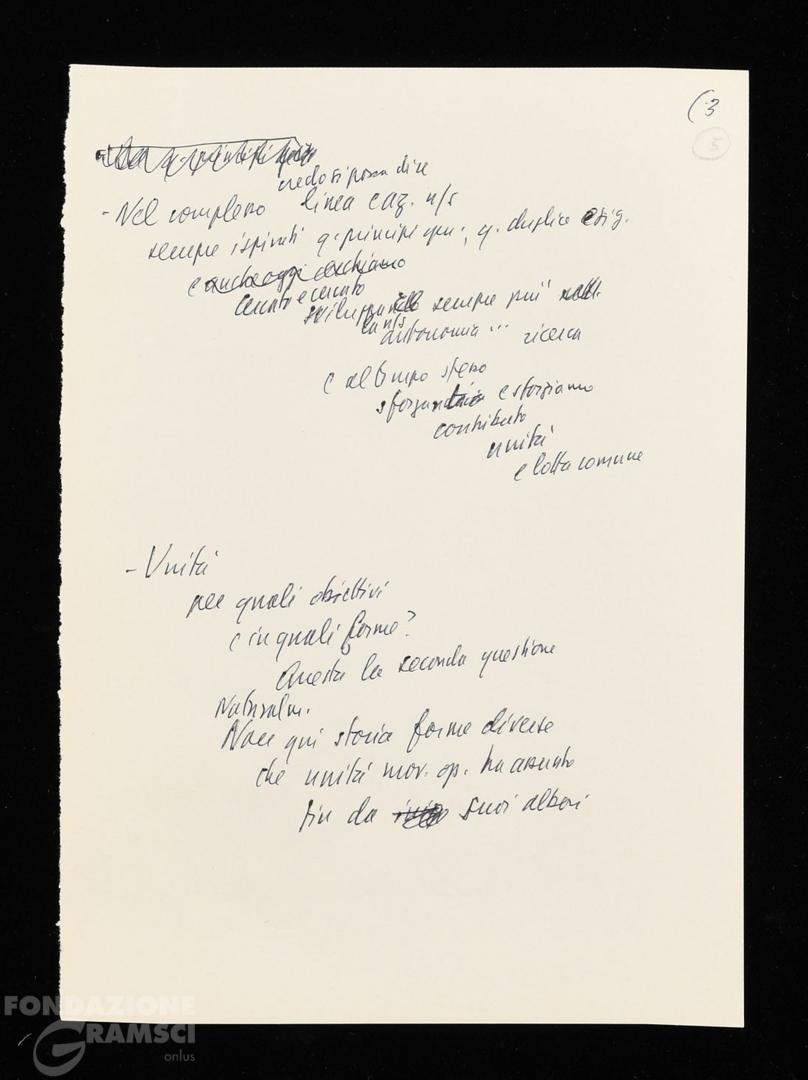 (3
5
credo si possa dire
- Nel complesso linea e az. n/s
sempre ispirati q. principi, q. duplice esig.
e anche oggi cerchiamo
cercato e cercato
sviluppare sempre più
la n/s
autonomia ... ricerca
e al tempo stesso
e sforziamo
contributo
unità
e lotta comune
- Unità
per quali obiettivi
e in quali forme?
Questa la seconda questione
Naturalm.
Non qui storia forme diverse
che unità mov. op. ha assunto
fin da suoi albori
FONDAZIONE
GRAMSCI
onlus